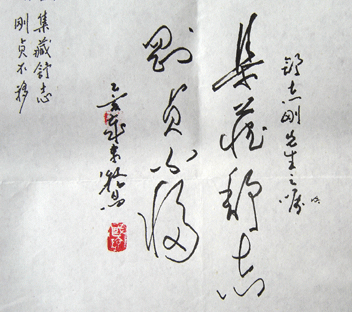 舒志刚先生之嘱
集藏舒志
剛貞不移
集藏舒志
刚贞不移